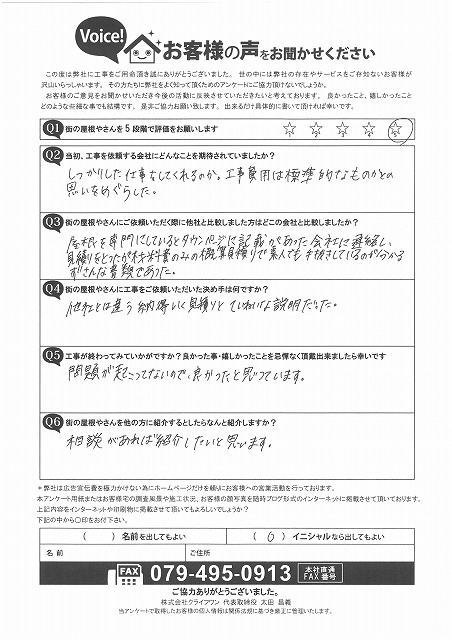 Voice!
お客様の声をお聞かせください
この度は弊社に工事をご用命頂き誠にありがとうございました。世の中には弊社の存在やサービスをご存知ないお客様が
沢山いらっしゃいます。その方たちに弊社をよく知って頂くためのアンケートにご協力頂けないでしょうか。
お客様のご意見をお聞かせいただき今後の活動に反映させていただきたいと考えております。良かったこと、嬉しかったこと
どのような些細な事でも結構です。是非ご協力お願い致します。出来るだけ具体的に書いて頂ければ幸いです。
Q1 街の屋根やさんを5段階で評価をお願いします ☆ ☆ ☆ ☆ ☆
Q2 当初、工事を依頼する会社にどんなことを期待されていましたか?
しっかりした仕事をしてくれるのか。工事費用は標準的なものかとの
思いをめぐらした。
Q3 街の屋根やさんにご依頼いただく際に他社と比較しました方はどこの会社と比較しましたか?
屋根を専門にしているとタウンページに記載があった会社に連絡し、
見積りをとったが材料費のみの概算見積りで素人でも手抜きしているのが分かる
ずさんな書類であった。
Q4 街の屋根やさんに工事をご依頼いただいた決め手は何ですか?
他社とは違う納得いく見積りとていねいな説明だった。
Q5 工事が終わってみていかがですか?良かった事・嬉しかったことを忌憚なく頂戴出来ましたら幸いです
問題が起こってないので、良かったと思っています。
Q6 街の屋根やさんを他の方に紹介するとしたらなんと紹介しますか?
相談があれば紹介したいと思います。
＊弊社は広告宣伝費を極力かけない為にホームページだけを頼りにお客様への営業活動を行っております。
本アンケート用紙またはお客様宅の調査風景や施工状況、お客様の顔写真を随時ブログ形式のインターネットに掲載させて頂いております。
上記内容をインターネットや印刷物に掲載させて頂いてもよろしいでしょうか?
下記の中から○印をお付け下さい。
( ) 名前を出してもよい ( ○ ) イニシャルなら出してもよい
名前 ご住所
FAX 079-495-0913 本社直通 FAX番号
ご協力ありがとうございました。
株式会社クライフワン 代表取締役 太田 昌義
当アンケートで取得したお客様の個人情報は関係法規に基づき厳正に管理いたします。